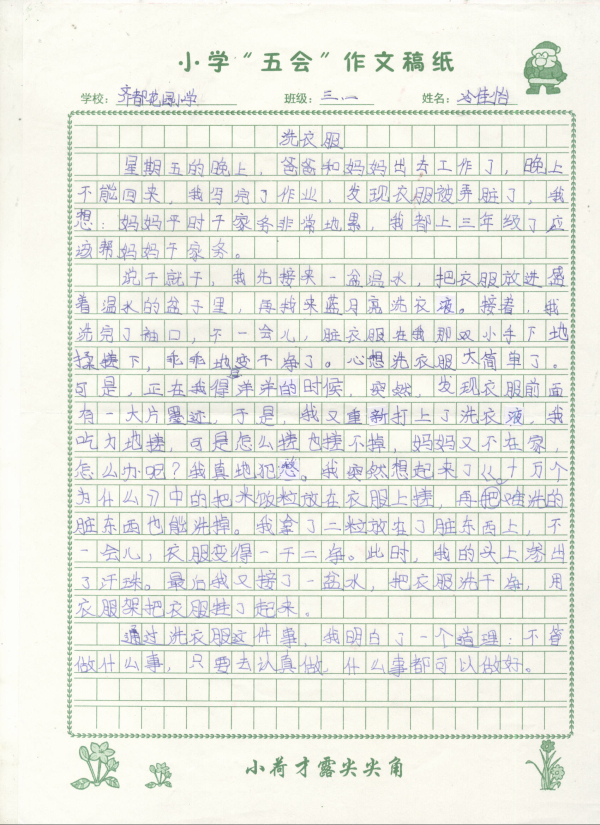 小学“五会”作文稿纸
学校：齐都花园小学 班级：三.一 姓名：冷佳怡
洗衣服
星期五的晚上，爸爸和妈妈出去工作了，晚上
不能回来，我写完了作业，发现衣服被弄脏了，我
想：妈妈平时干家务非常地累，我都上三年级了应
该帮妈妈干家务。
说干就干，我先接来一盆温水，把衣服放进盛
着温水的盆子里，再找来蓝月亮洗衣液。接着，我
洗完了袖口，不一会儿，脏衣服在我那双小手下地
揉搓下，乖乖地变干净了。心想洗衣服太简单了。
可是，正在我得洋洋的时候，突然，发现衣服前面
有一大片墨迹，于是，我又重新打上了洗衣液，我
吃力地搓，可是怎么搓也搓不掉，妈妈又不在家，
怎么办呢？我真地犯愁。我突然想起来了《十万个
为什么》中的把米饭粒放在衣服上搓，再把难洗的
脏东西也能洗掉。我拿了二粒放在了脏东西上，不
一会儿，衣服变得一干二净。此时，我的头上渗出
了汗珠。最后我又接了一盆水，把衣服洗干净，用
衣服架把衣服挂了起来。
通过洗衣服这件事，我明白了一个道理：不管
做什么事，只要去认真做，什么事都可以做好。
小荷才露尖尖角